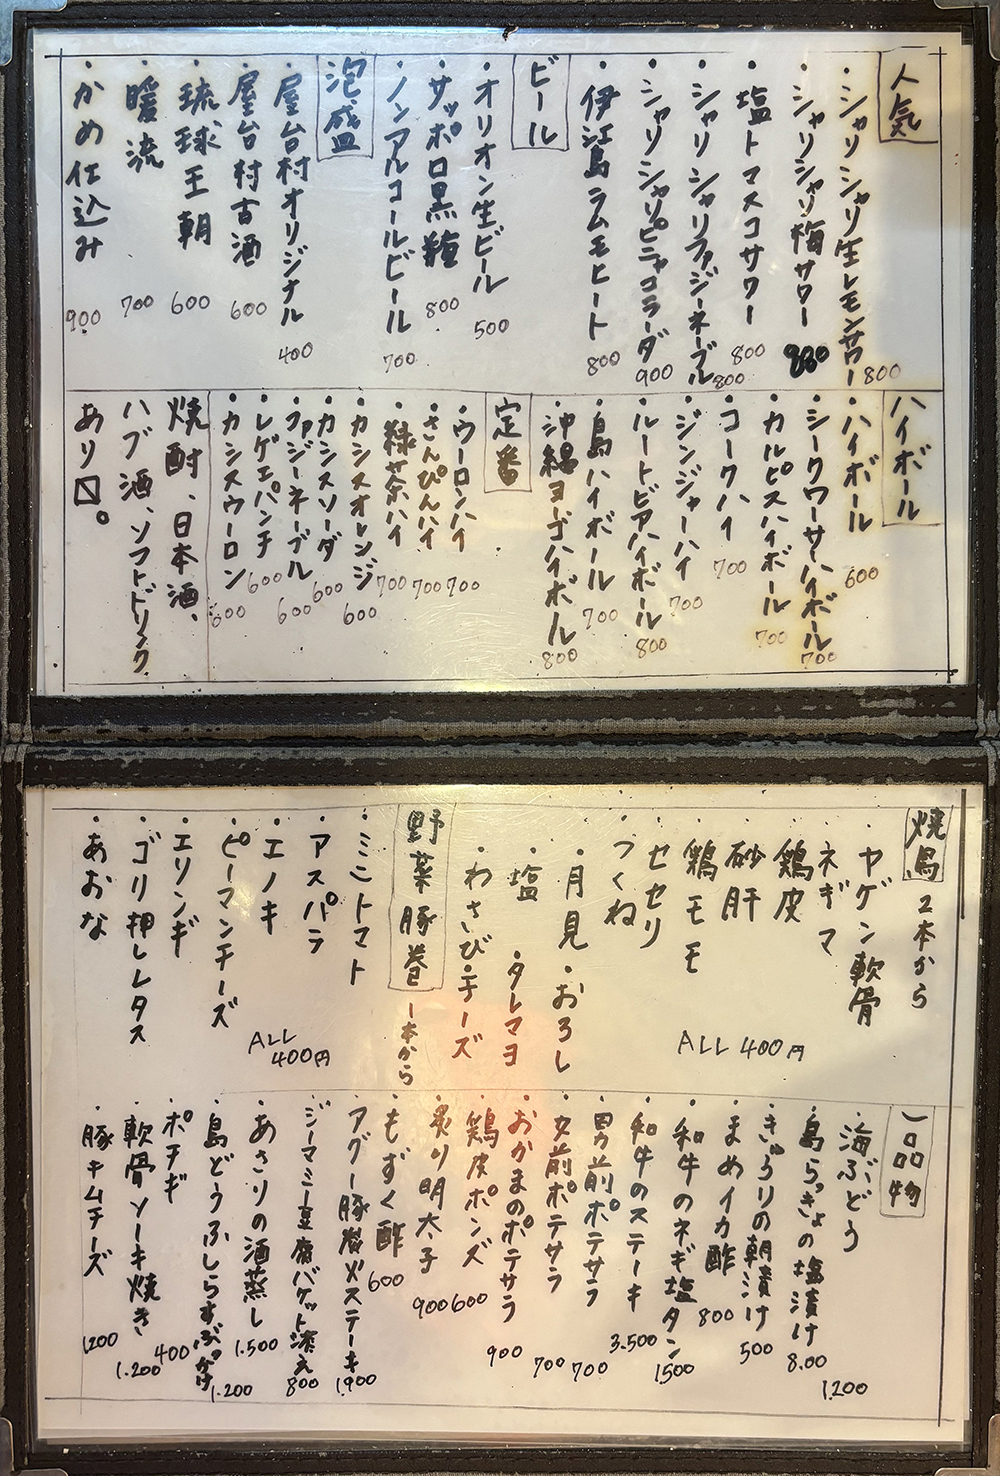 人気
・シャリシャリ生レモンサワー 800
・シャリシャリ梅サワー 800
・塩トマスコサワー 800
・シャリシャリファジーネーブル 800
・シャリシャリピニャコラーダ 900
・伊江島ラムモヒート 800
ビール
・オリオン生ビール 500
・サッポロ黒龍 800
・ノンアルコールビール 700
泡盛
・屋台村オリジナル 400
・屋台村古酒 600
・琉球王朝 600
・暖流 700
・かめ仕込み 900
ハイボール
・ハイボール 600
・シークワーサーハイボール 700
・カルピスハイボール 700
・コークハイ 700
・ジンジャーハイ 700
・ルートビアハイボール 800
・島ハイボール 700
・沖縄ヨーゴハイボール 800
定番
・ウーロンハイ 700
・さんぴんハイ 700
・緑茶ハイ 700
・カシスオレンジ 600
・カシスソーダ 600
・ファジーネーブル 600
・レゲエパンチ 600
・カシスウーロン 600
焼酎、日本酒、
ハブ酒、ソフトドリンク
あり〼。
焼鳥 2本から
・ヤゲン軟骨
・ネギマ
・鶏皮
・砂肝
・鶏モモ
・セセリ
・つくね
・月見・おろし
・塩・タレマヨ
・わさび・チーズ
ALL 400円
野菜豚巻 1本から
・ミニトマト
・アスパラ
・エノキ
・ピーマンチーズ
・エリンギ
・ゴリ押しレタス
・あおな
ALL 400円
一品物
・海ぶどう 1.200
・島らっきょの塩漬け 8.00
・きゅうりの朝漬け 500
・まめイカ酢 800
・和牛のネギ塩タン 1500
・和牛のステーキ 3.500
・男前ポテサラ 700
・女前ポテサラ 700
・おかまのポテサラ 900
・鶏皮ポンズ 600
・炙り明太子 900
・もずく酢 600
・アグー豚炭火ステーキ 1.900
・ジーマミー豆腐バケット添え 800
・あさりの酒蒸し 1.500
・島どうふしらすぶっかけ 1.200
・ポテギ 400
・軟骨ソーキ焼き 1.200
・豚キムチーズ 1200